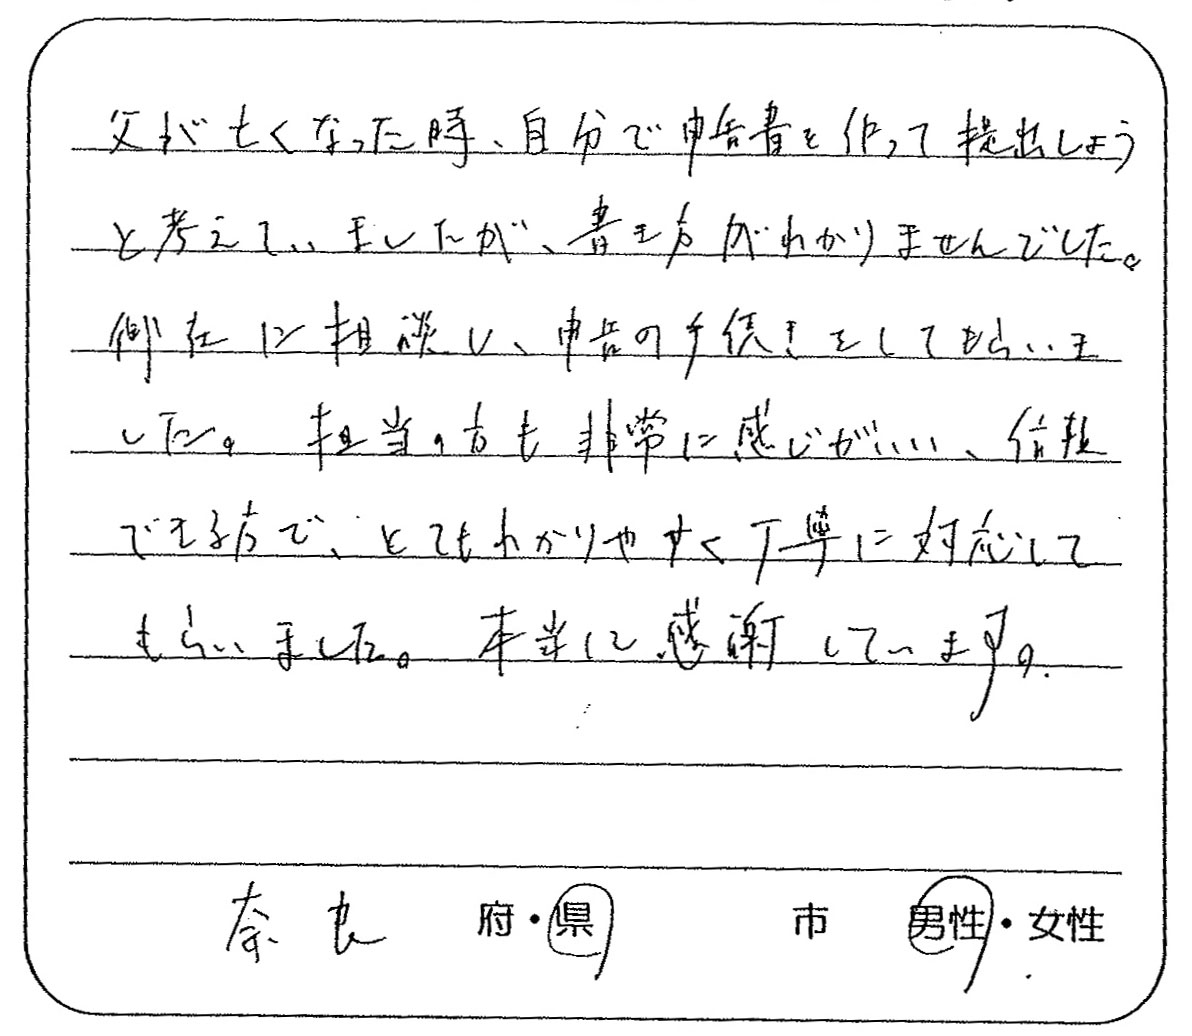 父が亡くなった時、自分で申告書を作って提出しよう
と考えていましたが、書き方がわかりませんでした。
御社に相談し、申告の手続きをしてもらいま
した。担当の方も非常に感じがいい、信頼
できる方で、とてもわかりやすく丁寧に対応して
もらいました。本当に感謝しています。
奈良 府・県 市 男性・女性